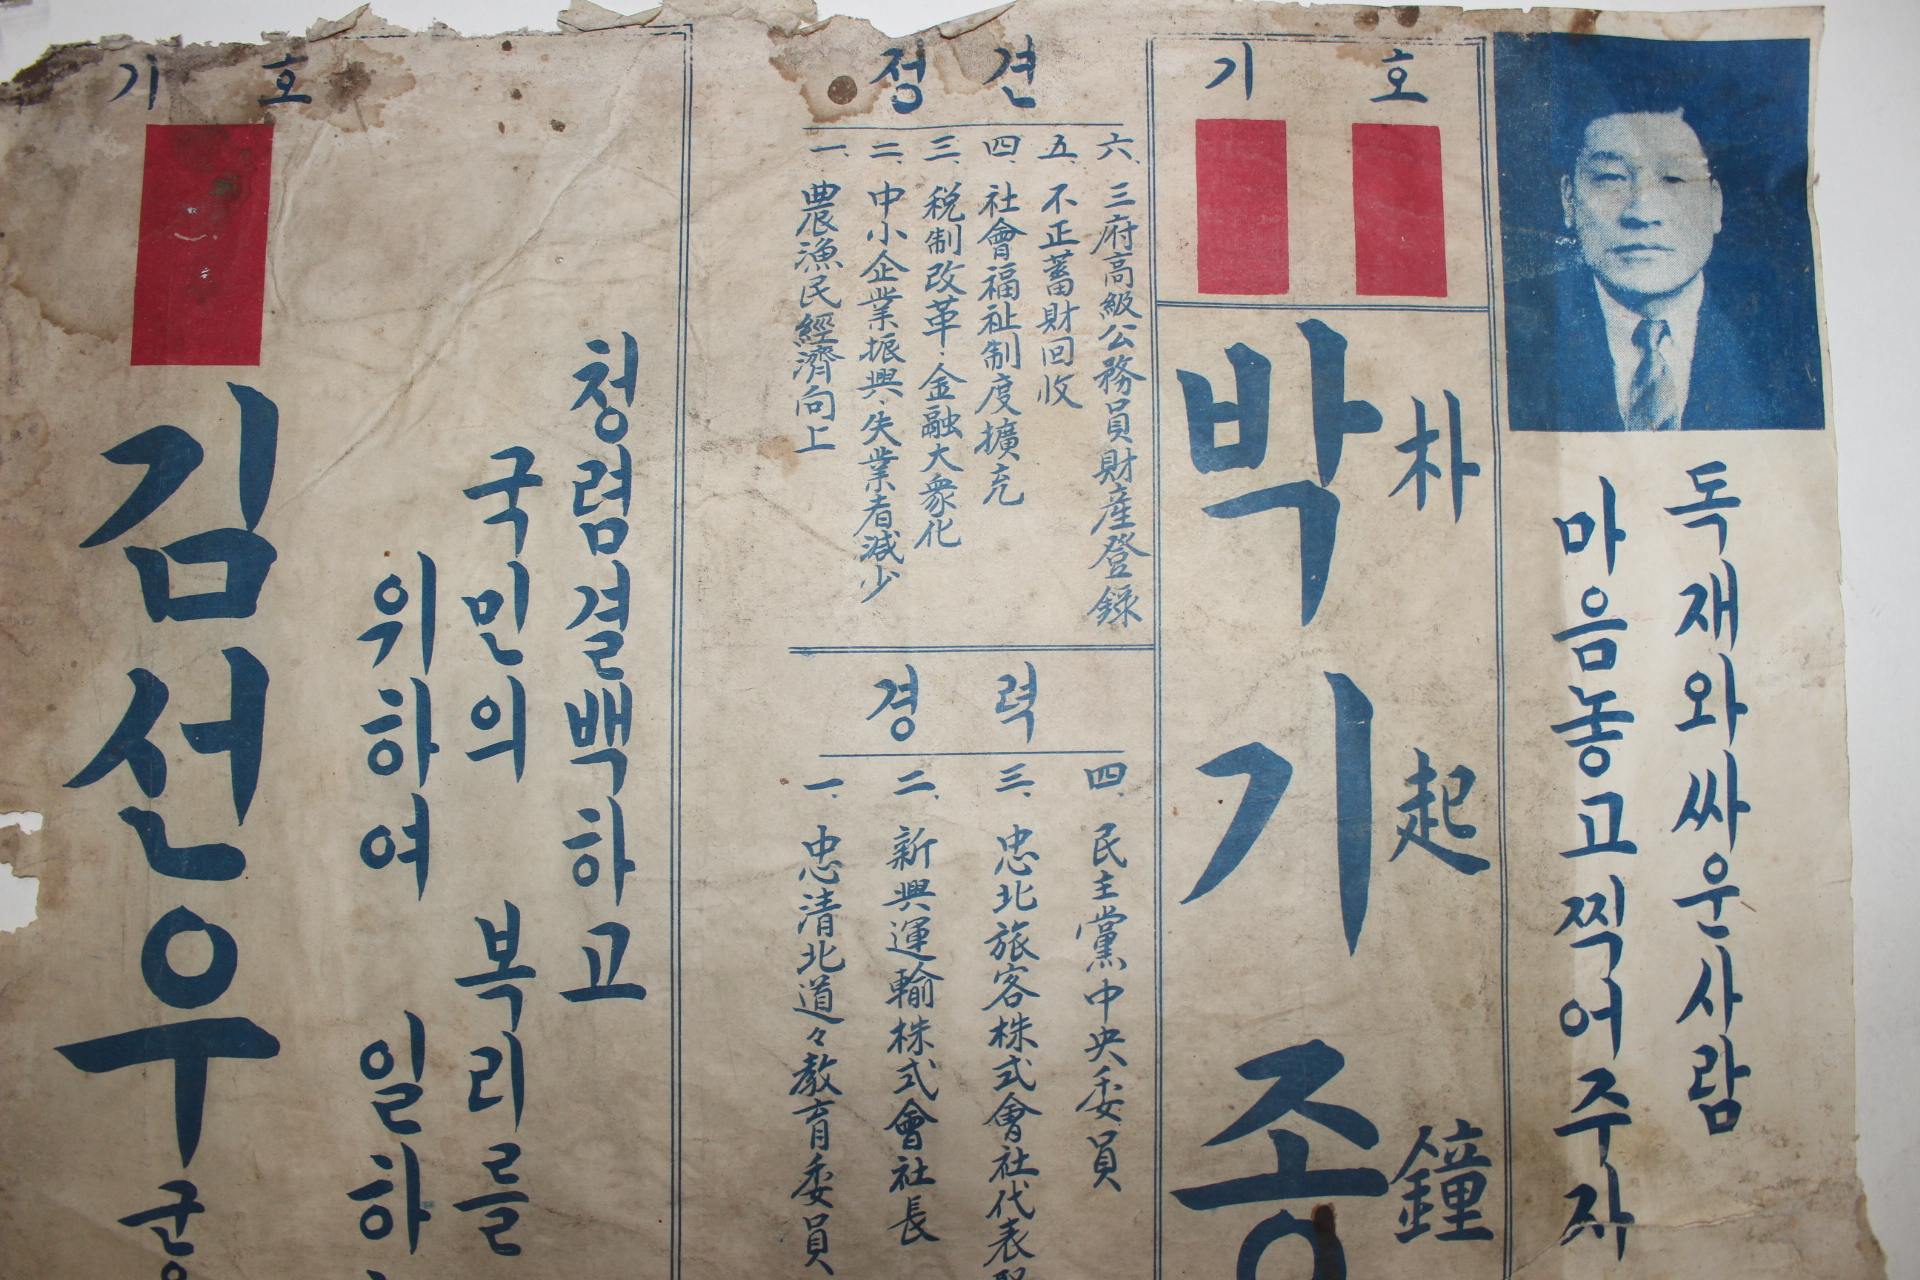 독재와싸운사람
마음놓고찍어주자
기 호
朴起鐘
박기종
정 견
一、農漁民經濟向上
二、中小企業振興、失業者減少
三、税制改革、金融大衆化
四、社會福祉制度擴充
五、不正蓄財回收
六、三府高級公務員財産登録
경 력
一、忠清北道々教育委員
二、新興運輸株式會社長
三、忠北旅客株式會社代表
四、民主黨中央委員
청렴결백하고
국민의 복리를
위하여 일하
기 호
김선우